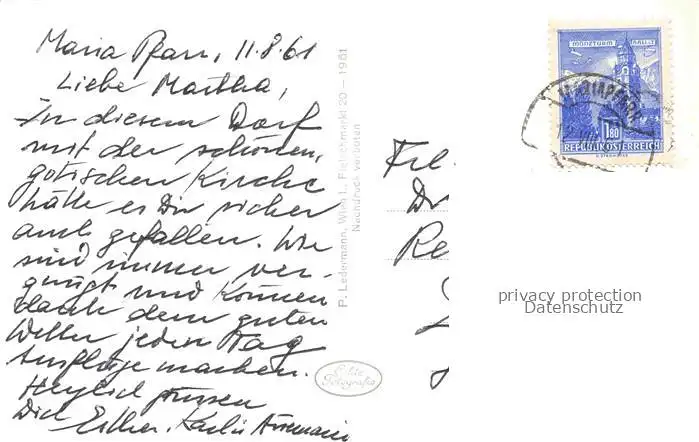 Maria Pfarr, 11.8.61
Liebe Martha,
In diesem Dorf
mit der schönen,
gotischen Kirche
hätte es Dir sicher
auch gefallen. Wir
sind immer ver-
gnügt und können
dank dem guten
Wetter jeden Tag
Ausflüge machen.
Herzlich grüssen
Dich Esther, Karli Annemarie
P. Ledermann, Wien I., Fleischmarkt 20 — 1961
Nachdruck verboten
Echte
Fotografie
MÜNZTURM HALL i. T.
MARIAPFARR
1.80
REPUBLIK ÖSTERREICH
Frl.
Dr
Re
privacy protection
Datenschutz